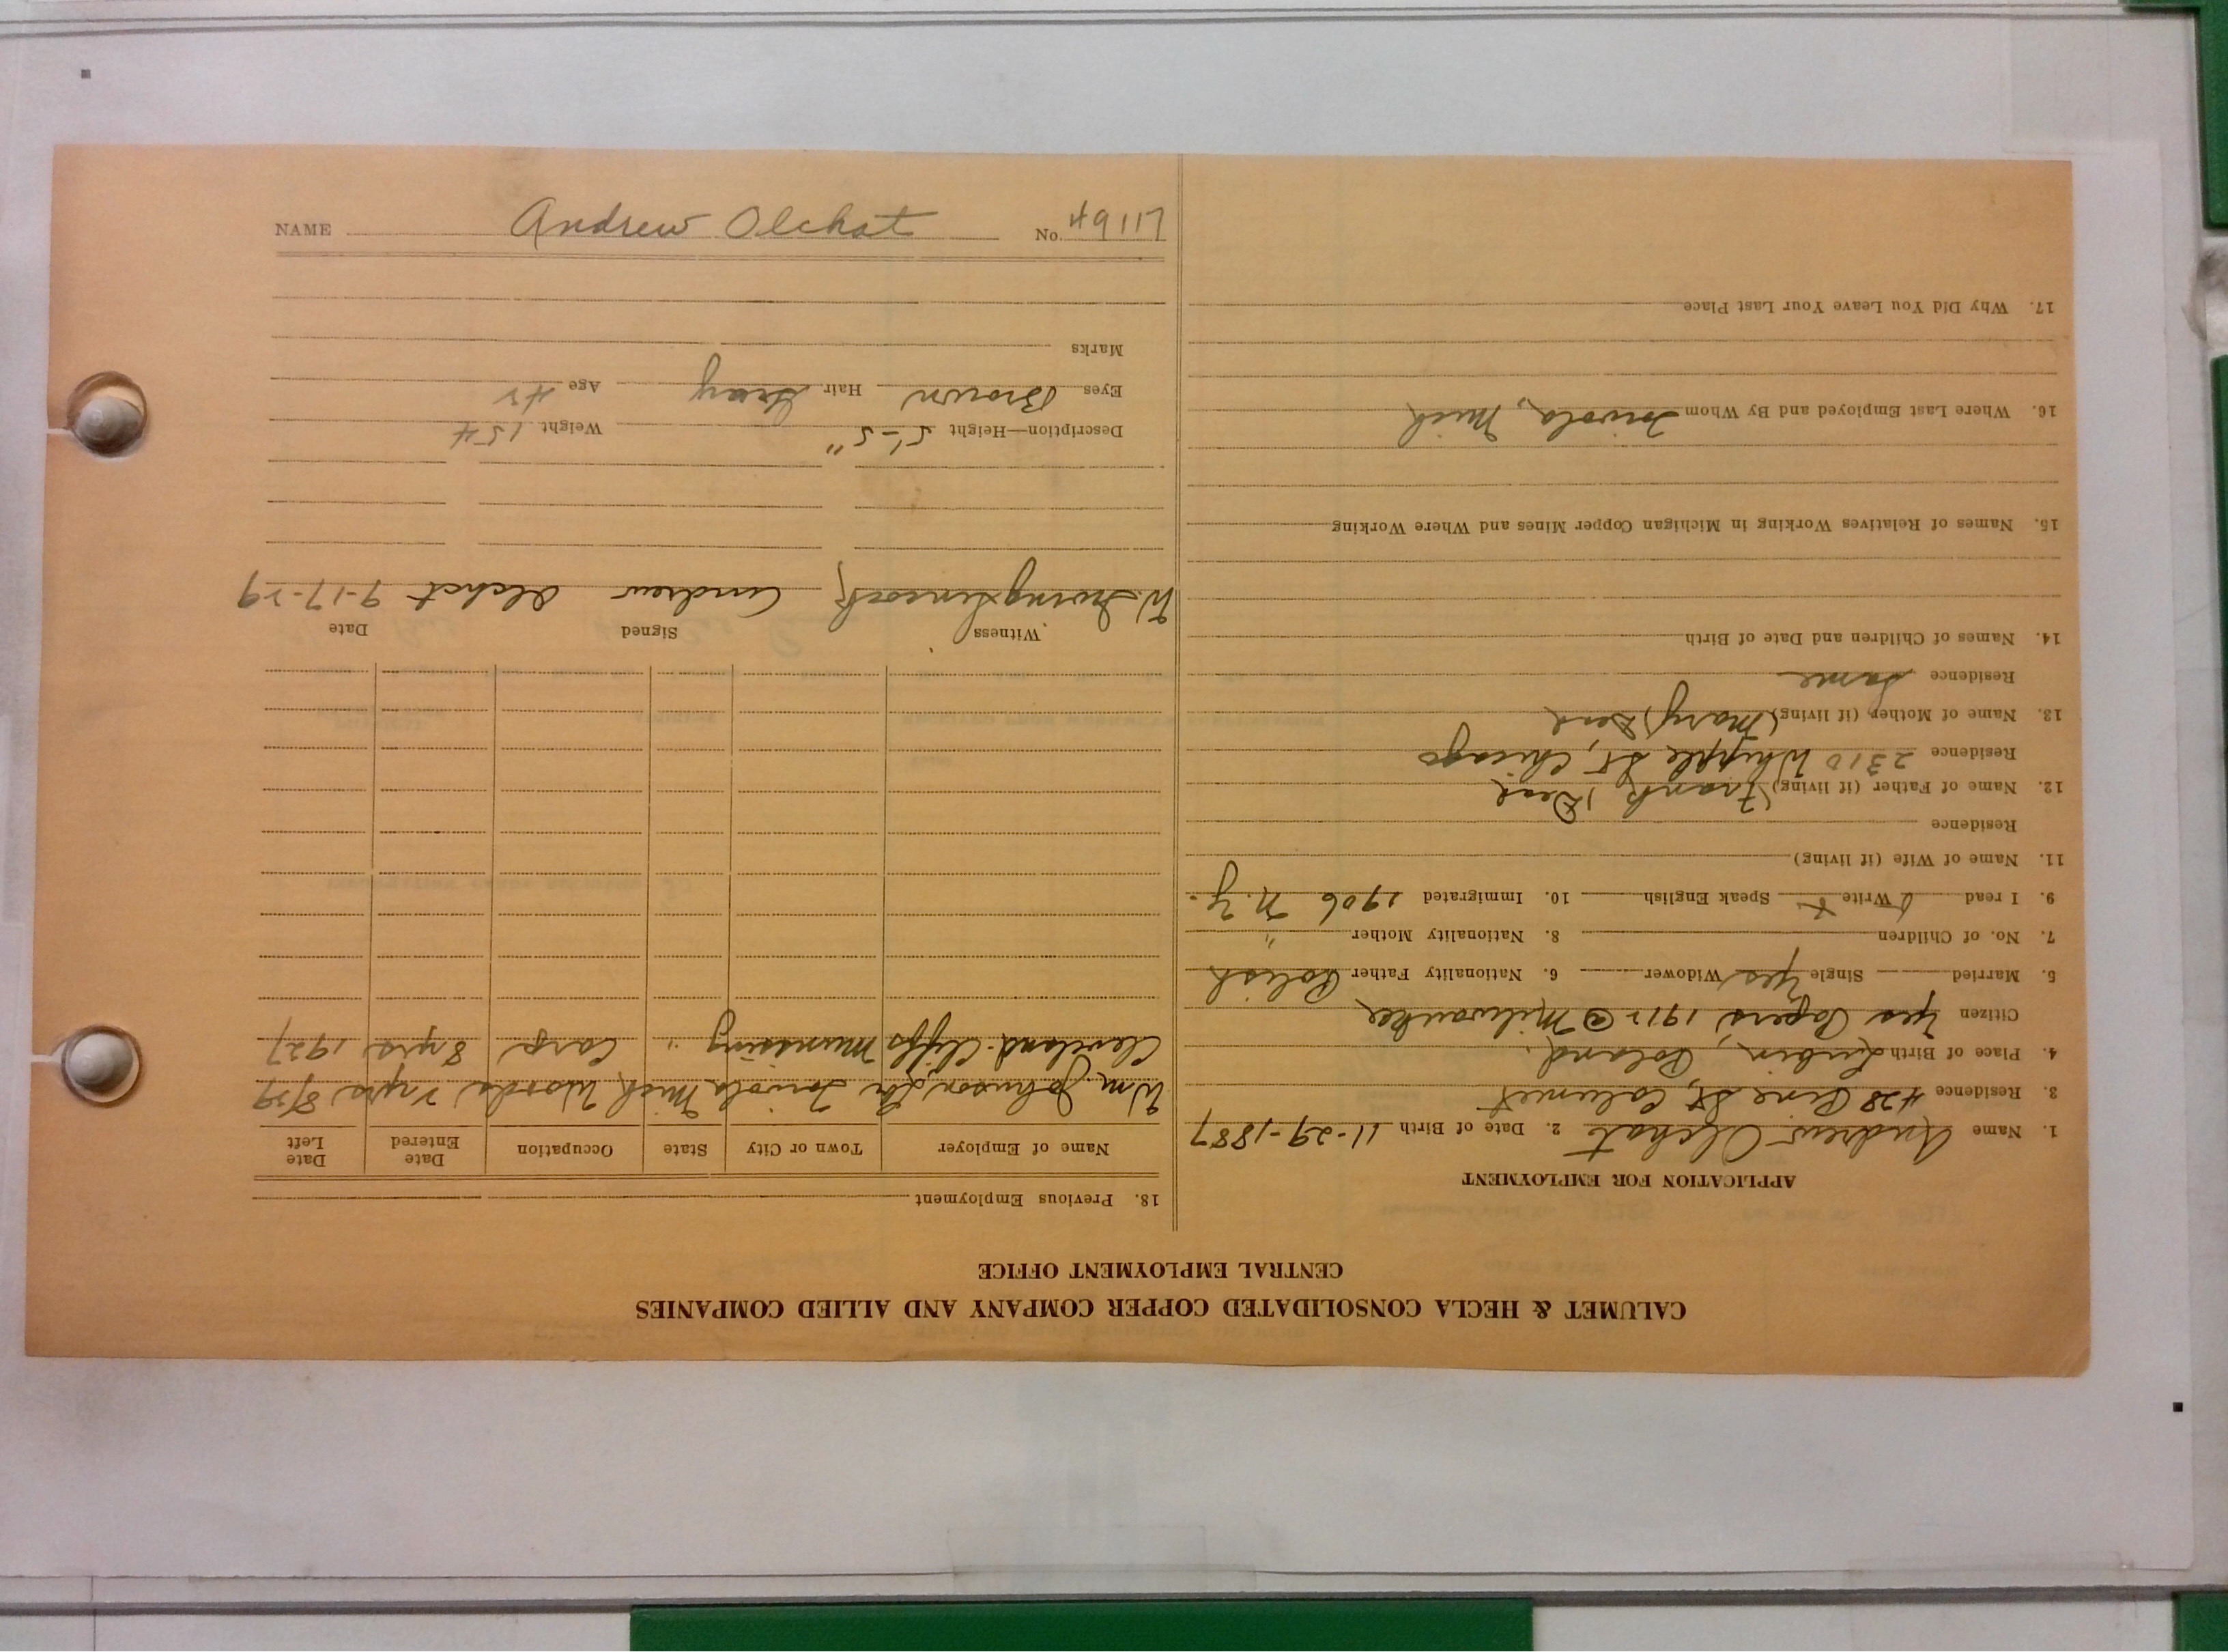 NAME Andrew Olchat No. 49117
CALUMET & HECLA CONSOLIDATED COPPER COMPANY AND ALLIED COMPANIES
CENTRAL EMPLOYMENT OFFICE
APPLICATION FOR EMPLOYMENT
1. Name Andrew Olchat 2. Date of Birth 11-29-1887
3. Residence 428 Pine St, Calumet
4. Place of Birth Lubin, Poland.
Citizen Yes Papers 1912 @ Milwaukee
5. Married Single Yes Widower 6. Nationality Father Polish
7. No. of Children 8. Nationality Mother "
9. I read Write Speak English 10. Immigrated 1906 N.Y.
11. Name of Wife (if living)
Residence
12. Name of Father (if living) (Frank) Dead
Residence 2310 Whipple St, Chicago
13. Name of Mother (if living) (Mary) Dead
Residence Same
14. Names of Children and Date of Birth
15. Names of Relatives Working in Michigan Copper Mines and Where Working
16. Where Last Employed and By Whom Toivola, Mich
17. Why Did You Leave Your Last Place
18. Previous Employment
Name of Employer Town or City State Occupation Date Entered Date Left
Wm. Johnson Toivola Mich Woods 2 yrs 8/29
Cleveland Cliffs Munising " Carp 8 yrs 1927
Witness Signed Date
W. Irving Andrew Olchat 9-17-29
Description—Height 5'-5" Weight 154
Eyes Brown Hair Gray Age 42
Marks